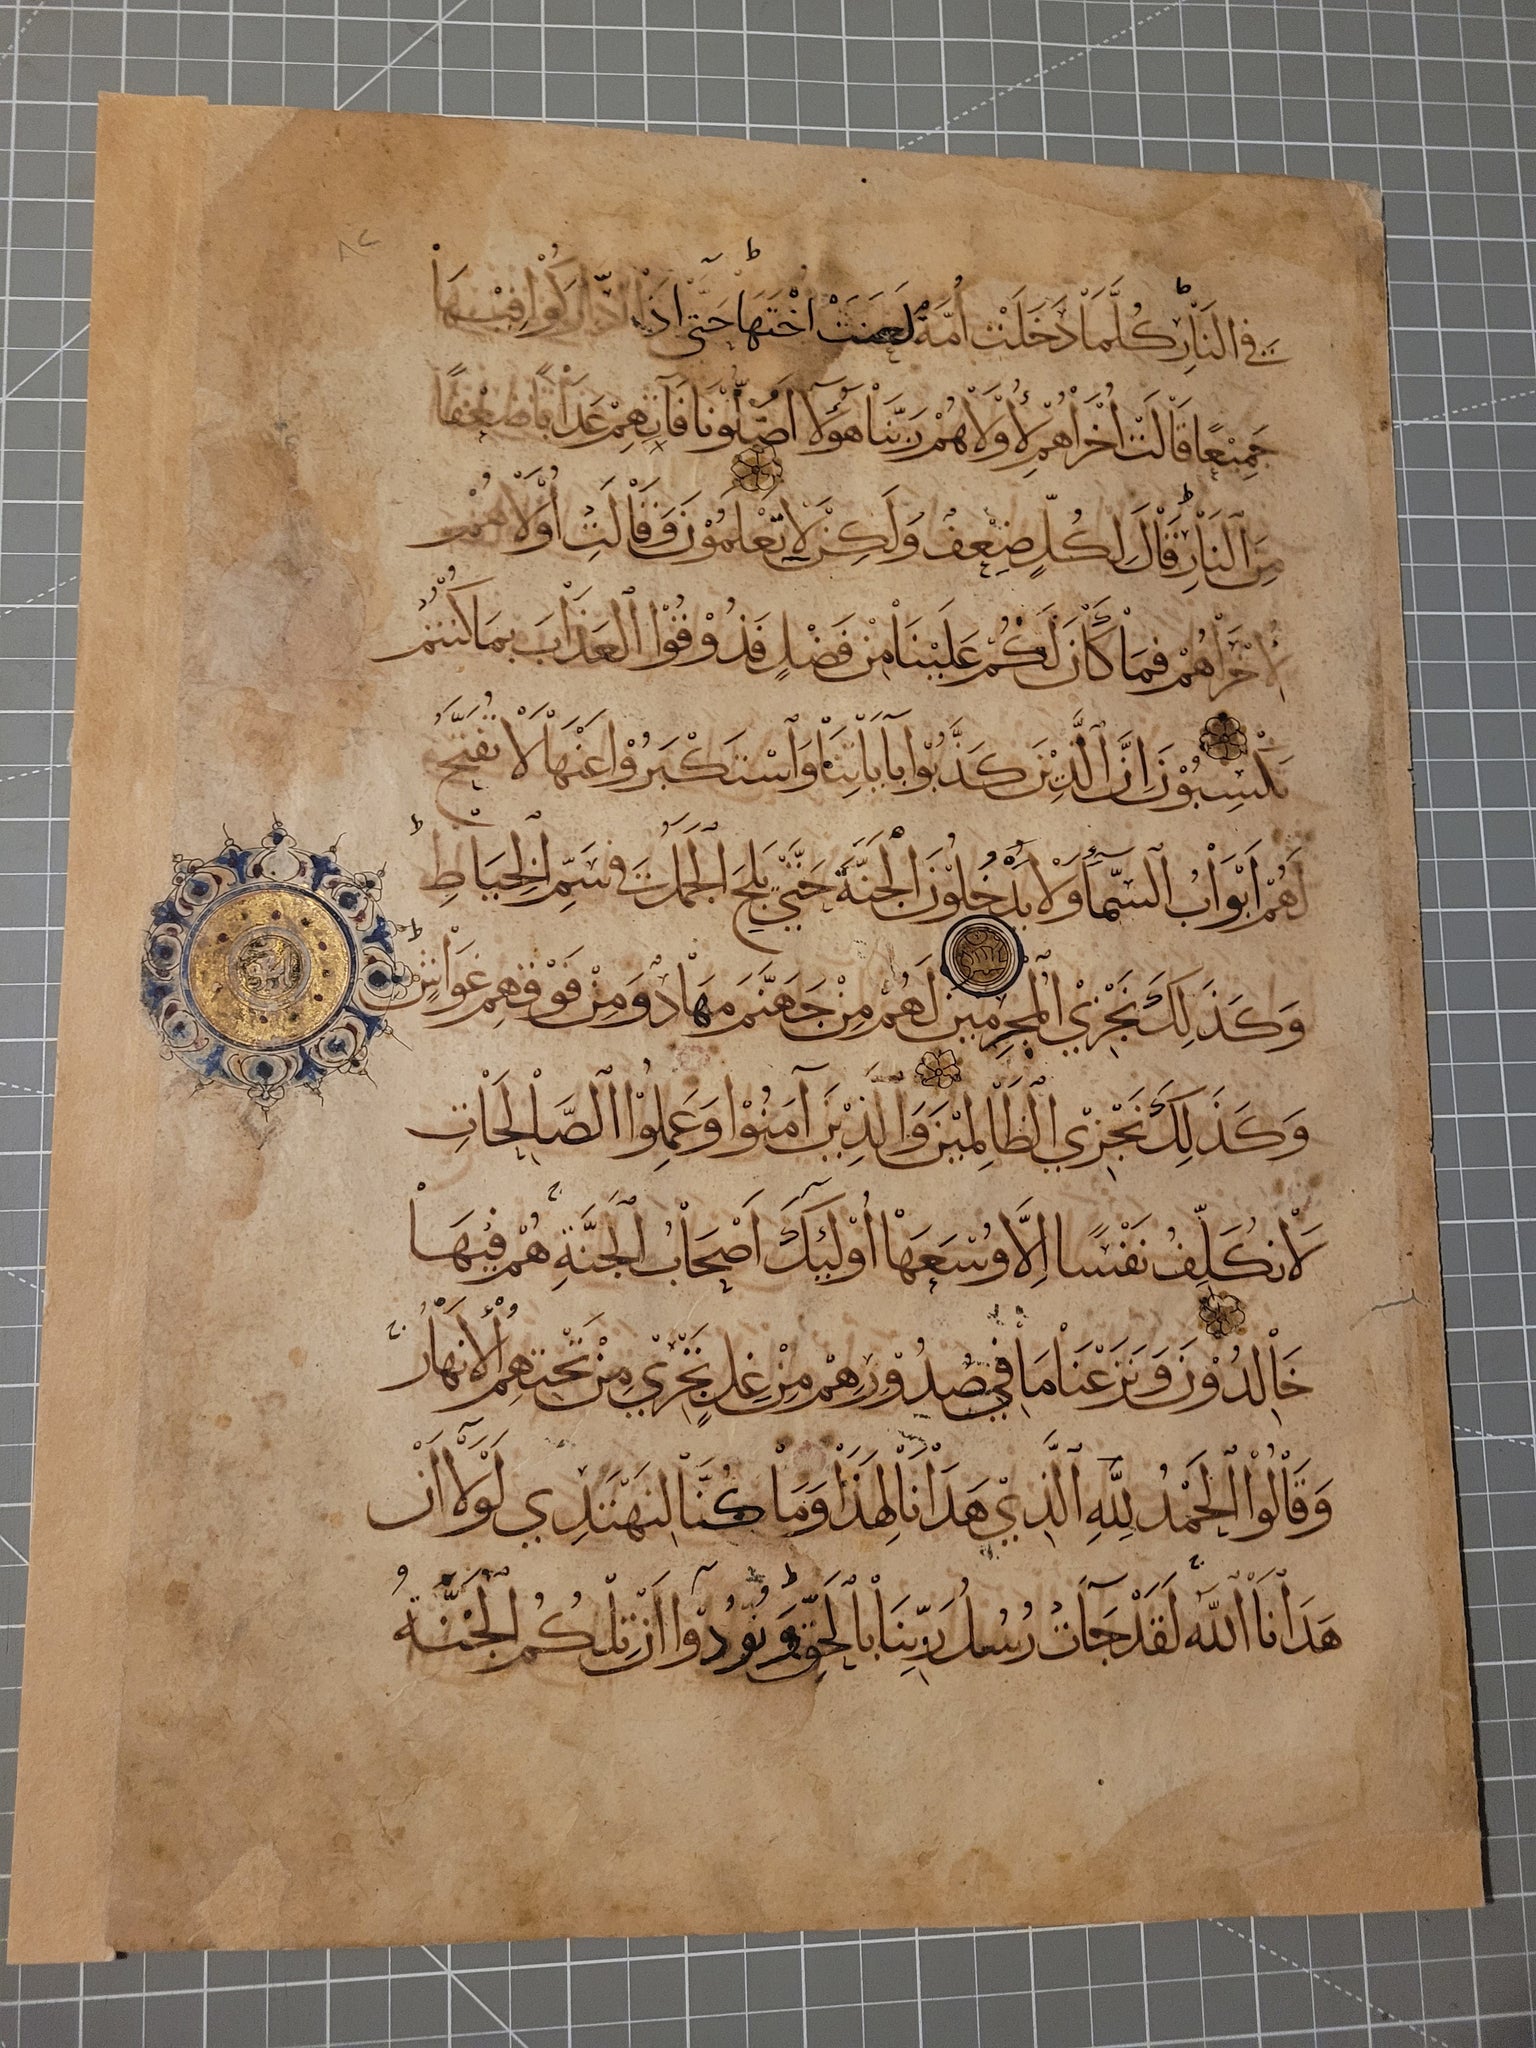 في النَّارِ كُلَّمَا دَخَلَتْ أُمَّةٌ لَعَنَتْ اُخْتَهَا حَتَّى اذَا ادَّارَكُوْا فِيْهَا
جَمِيْعًا قَالَتْ اُخْرَاهُمْ لِأُوْلَاهُمْ رَبَّنَا هَؤُلَآ اَضَلُّوْنَا فَآتِهِمْ عَذَابًا ضِعْفًا
مِنَ النَّارِ قَالَ لِكُلٍّ ضِعْفٌ وَلَكِنْ لَا تَعْلَمُوْنَ وَقَالَتْ اُوْلَاهُمْ
لِاُخْرَاهُمْ فَمَا كَانَ لَكُمْ عَلَيْنَا مِنْ فَضْلٍ فَذُوْقُوْا الْعَذَابَ بِمَا كُنْتُمْ
تَكْسِبُوْنَ اِنَّ الَّذِيْنَ كَذَّبُوْا بِآيَاتِنَا وَاسْتَكْبَرُوْا عَنْهَا لَا تُفَتَّحُ
لَهُمْ اَبْوَابُ السَّمَآءِ وَلَا يَدْخُلُوْنَ الْجَنَّةَ حَتَّى يَلِجَ الْجَمَلُ فِي سَمِّ الْخِيَاطِ
وَكَذَلِكَ نَجْزِي الْمُجْرِمِينَ لَهُمْ مِنْ جَهَنَّمَ مِهَادٌ وَمِنْ فَوْقِهِمْ غَوَاشٍ
وَكَذَلِكَ نَجْزِي الظَّالِمِيْنَ وَالَّذِيْنَ آمَنُوْا وَعَمِلُوْا الصَّالِحَاتِ
لَا نُكَلِّفُ نَفْسًا اِلَّا وُسْعَهَا اُوْلَئِكَ اَصْحَابُ الْجَنَّةِ هُمْ فِيْهَا
خَالِدُوْنَ وَنَزَعْنَا مَا فِي صُدُوْرِهِمْ مِنْ غِلٍّ تَجْرِيْ مِنْ تَحْتِهِمُ الْأَنْهَارُ
وَقَالُوْا الْحَمْدُ لِلَّهِ الَّذِيْ هَدَانَا لِهَذَا وَمَا كُنَّا لِنَهْتَدِي لَوْلَا اَنْ
هَدَانَا اللَّهُ لَقَدْ جَآتْ رُسُلُ رَبِّنَا بِالْحَقِّ وَنُوْدُوْا اَنْ تِلْكُمُ الْجَنَّةُ